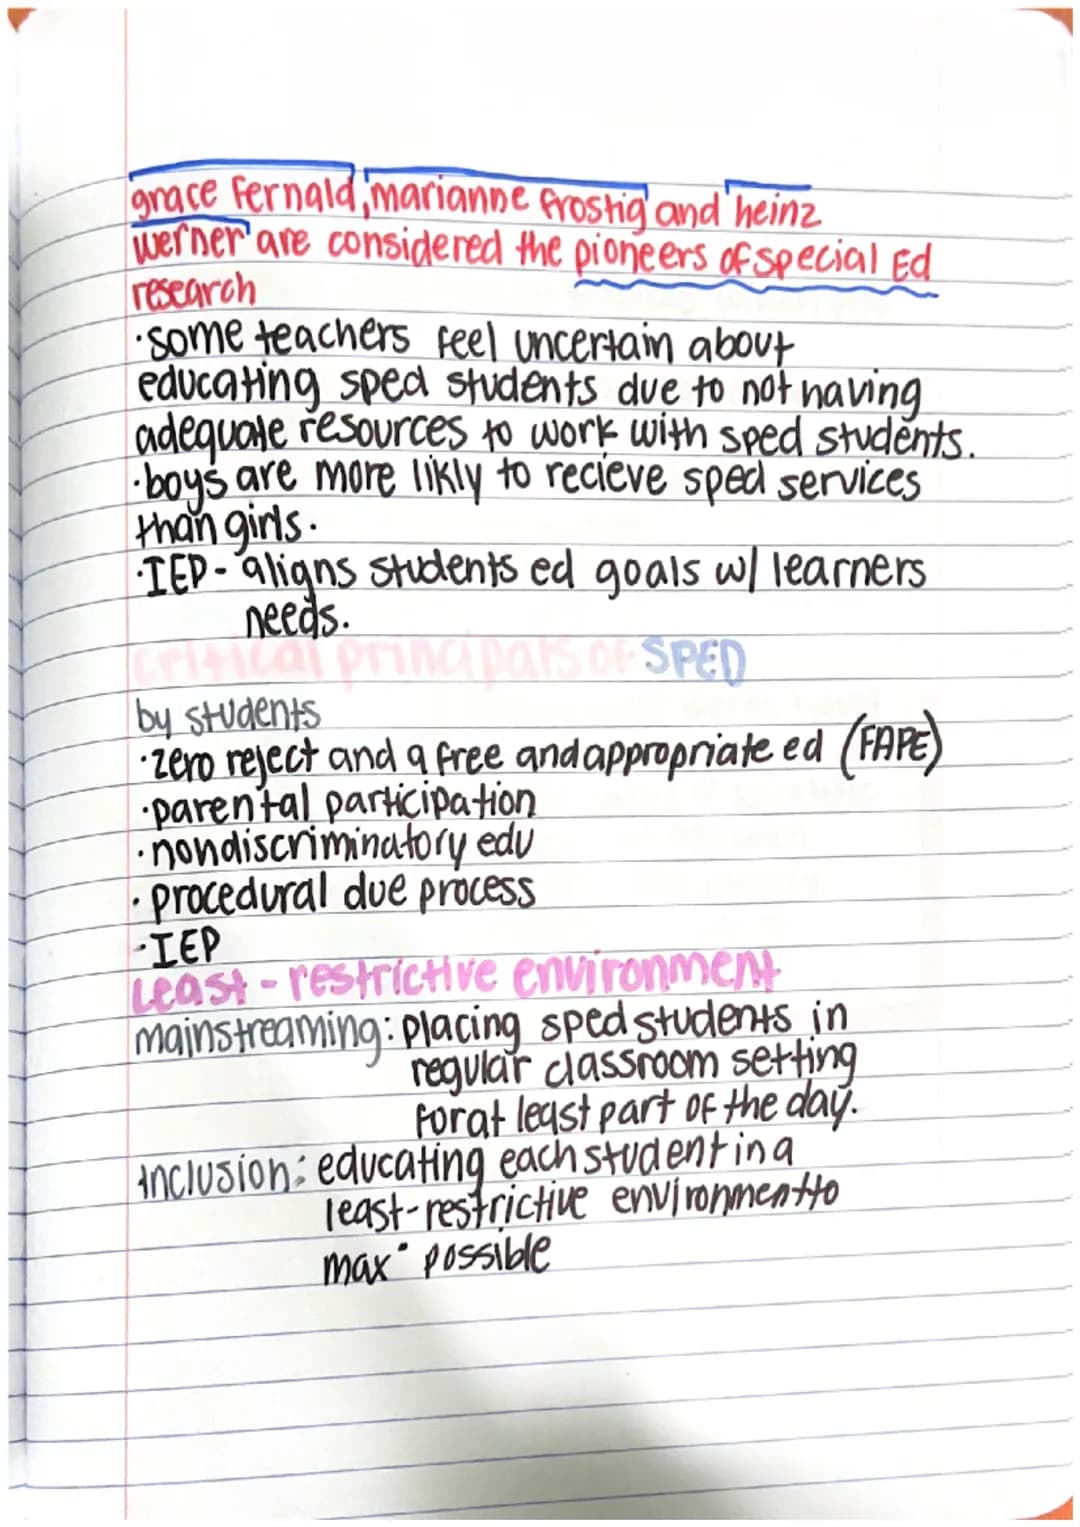 grace Fernald, marianne frostig and heinz
werner are considered the pioneers of special Ed
research
·some teachers feel uncertain about
educating sped students due to not having
adequate resources to work with sped students.
·boys are more likly to recieve sped services
than girls.
·IEP- aligns students ed goals w/ learners
needs.
critical principals of SPED
by students
·zero reject and a free and appropriate ed (FAPE)
·parental participation
·nondiscriminatory edu
·procedural due process
·IEP
Least-restrictive environment
mainstreaming: placing sped students in
regular classroom setting
for at least part of the day.
inclusion: educating each student in a
least-restrictive environment to
max· possible